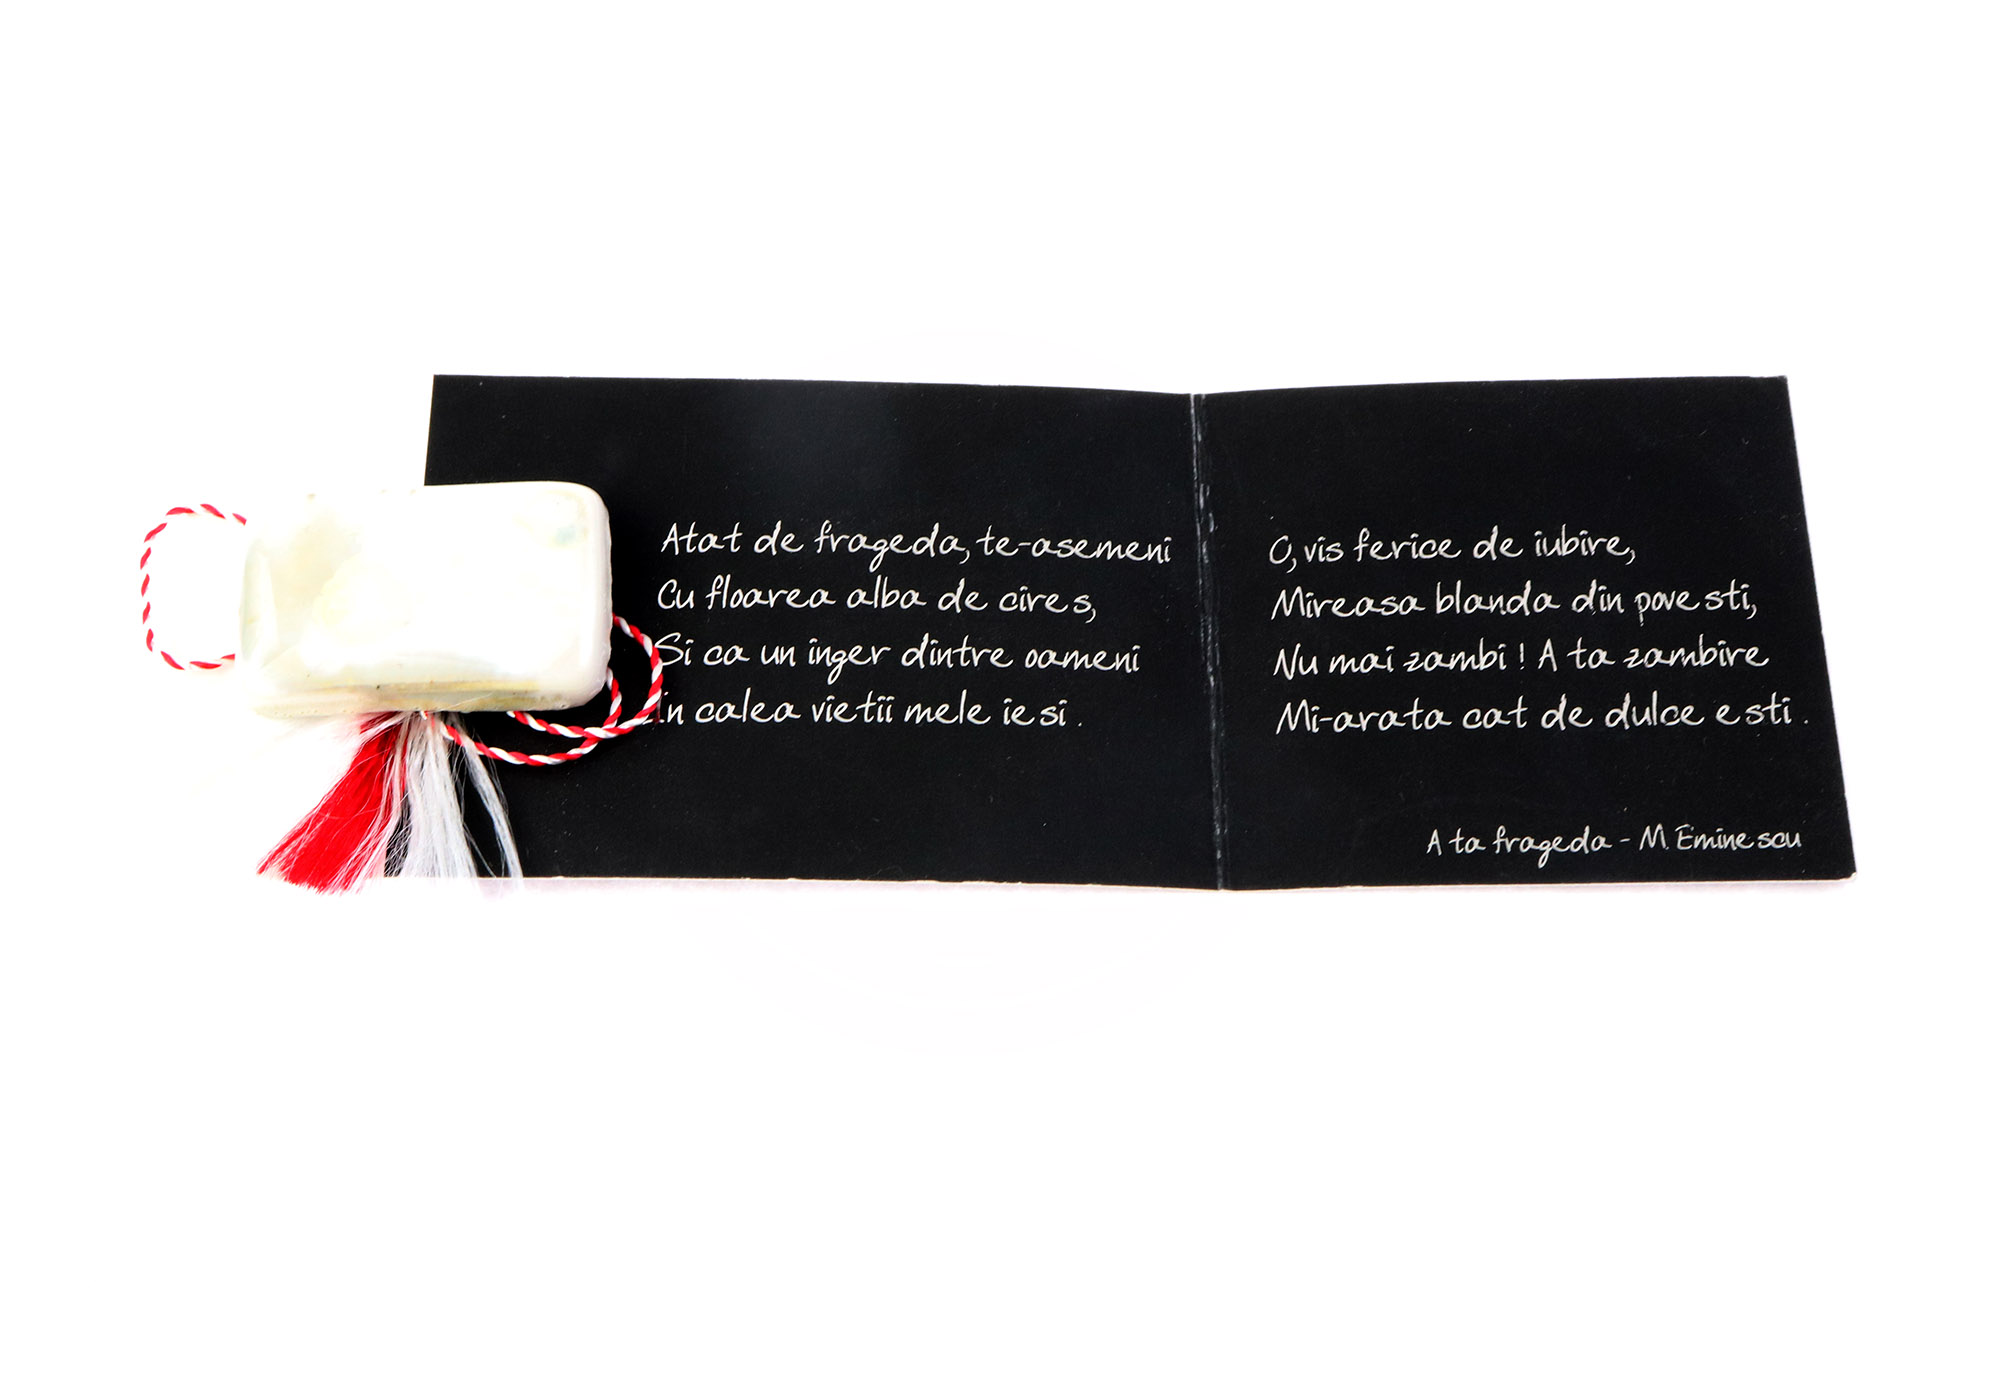 Atat de frageda, te-asemeni
Cu floarea alba de cires,
Si ca un inger dintre oameni
In calea vietii mele iesi.
O, vis ferice de iubire,
Mireasa blanda din povesti,
Nu mai zambi! A ta zambire
Mi-arata cat de dulce esti.
A ta frageda - M. Eminescu